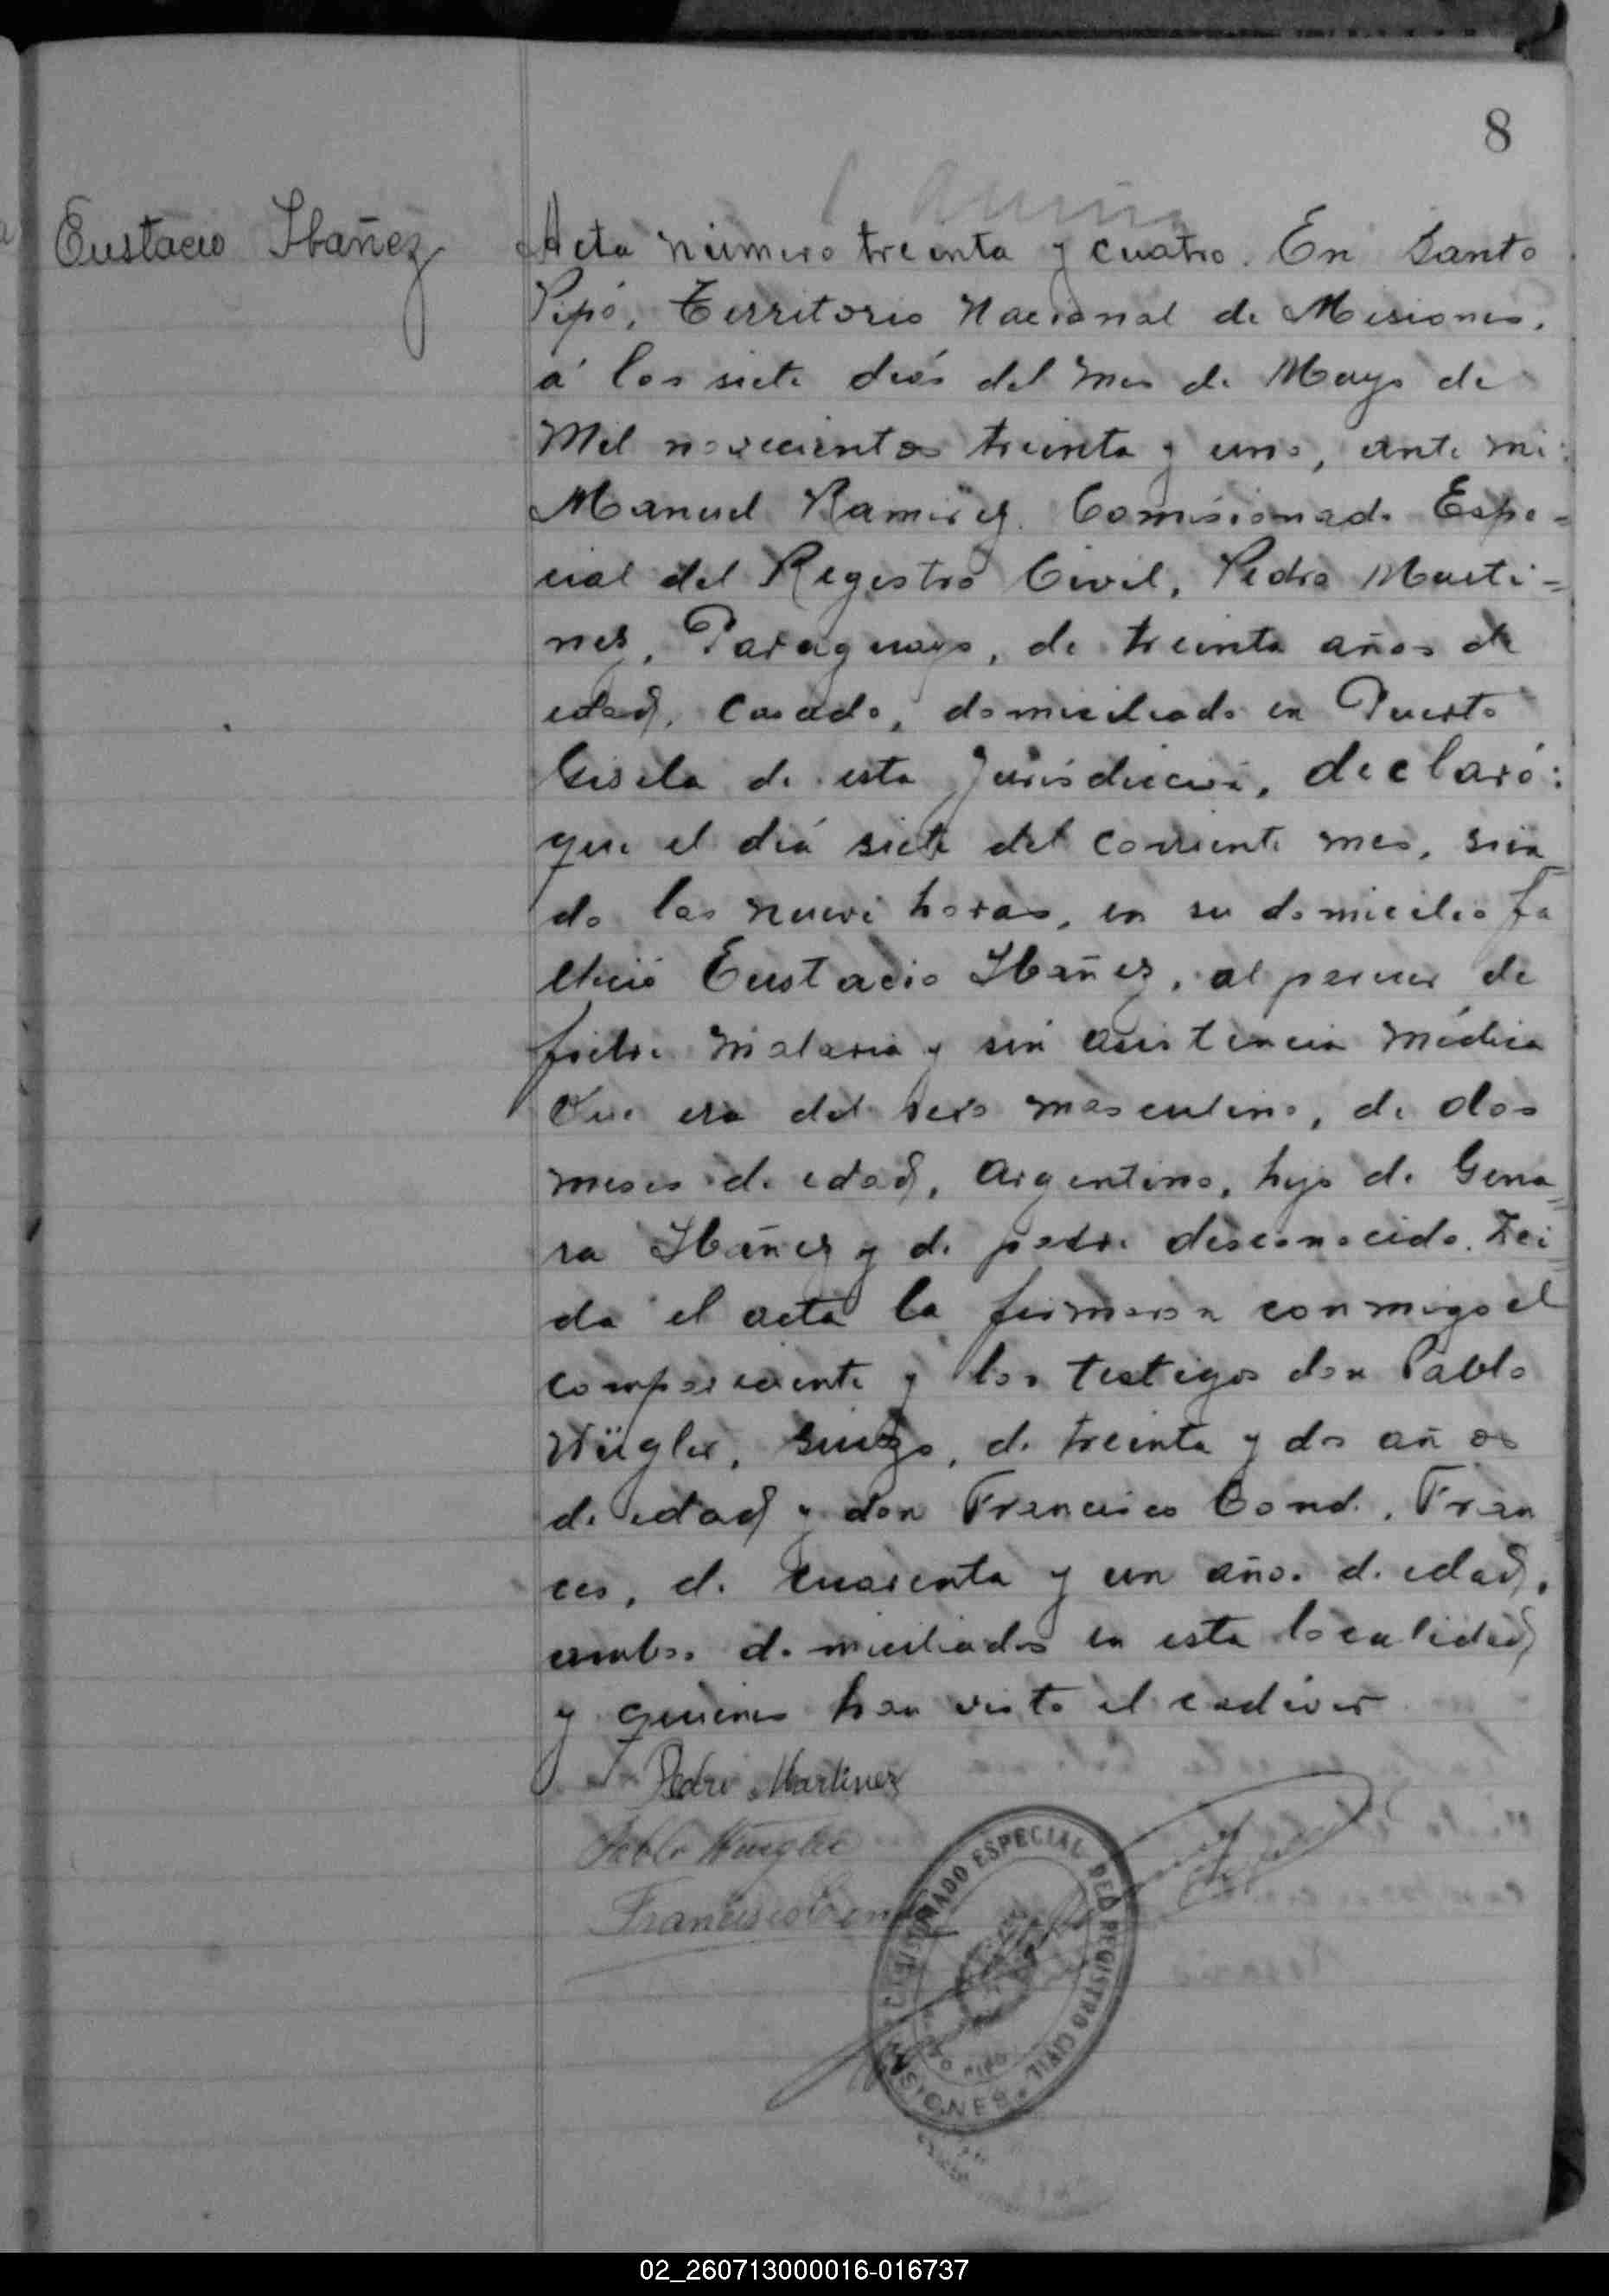 8
Eustacio Ibañez
Acta número treinta y cuatro. En Santo
Pipó, Territorio Nacional de Misiones,
á los siete diás del mes de Mayo de
mil novecientos treinta y uno, ante mi:
Manuel Ramirez. Comisionado Espe=
cial del Registro Civil, Pedro Marti=
nez, Paraguayo, de treinta años de
edad, casado, domiciliado en Puerto
Gisela de esta Jurisdicción, declaró:
que el diá siete del corriente mes, sien
do las nueve horas, en su domicilio fa
lleció Eustacio Ibañez, al parecer de
fiebre malaria y sin asistencia médica
Que era del sexo masculino, de dos
meses de edad, argentino, hijo de Gena=
ra Ibañez y de padre desconocido. Lei
da el acta la firmaron conmigo el
compareciente y los testigos don Pablo
Wügler, suizo, de treinta y dos años
de edad y don Francisco Cond. , Fran
ces, de cuarenta y un años de edad,
ambos domiciliados en esta localidad
y quienes han visto el cadáver
Pedro Martinez
Pablo Wuegler
Francisco
COMISIONADO ESPECIAL DEL REGISTRO CIVIL
MISIONES
SANTO PIPÓ
02_260713000016-016737